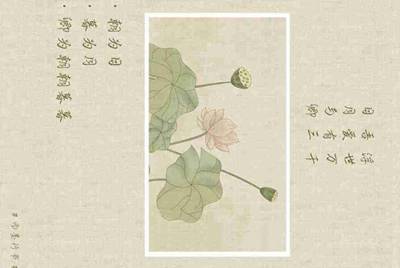 浮世万千
吾爱有三
日月与卿
朝为日
暮为月
卿为朝朝暮暮